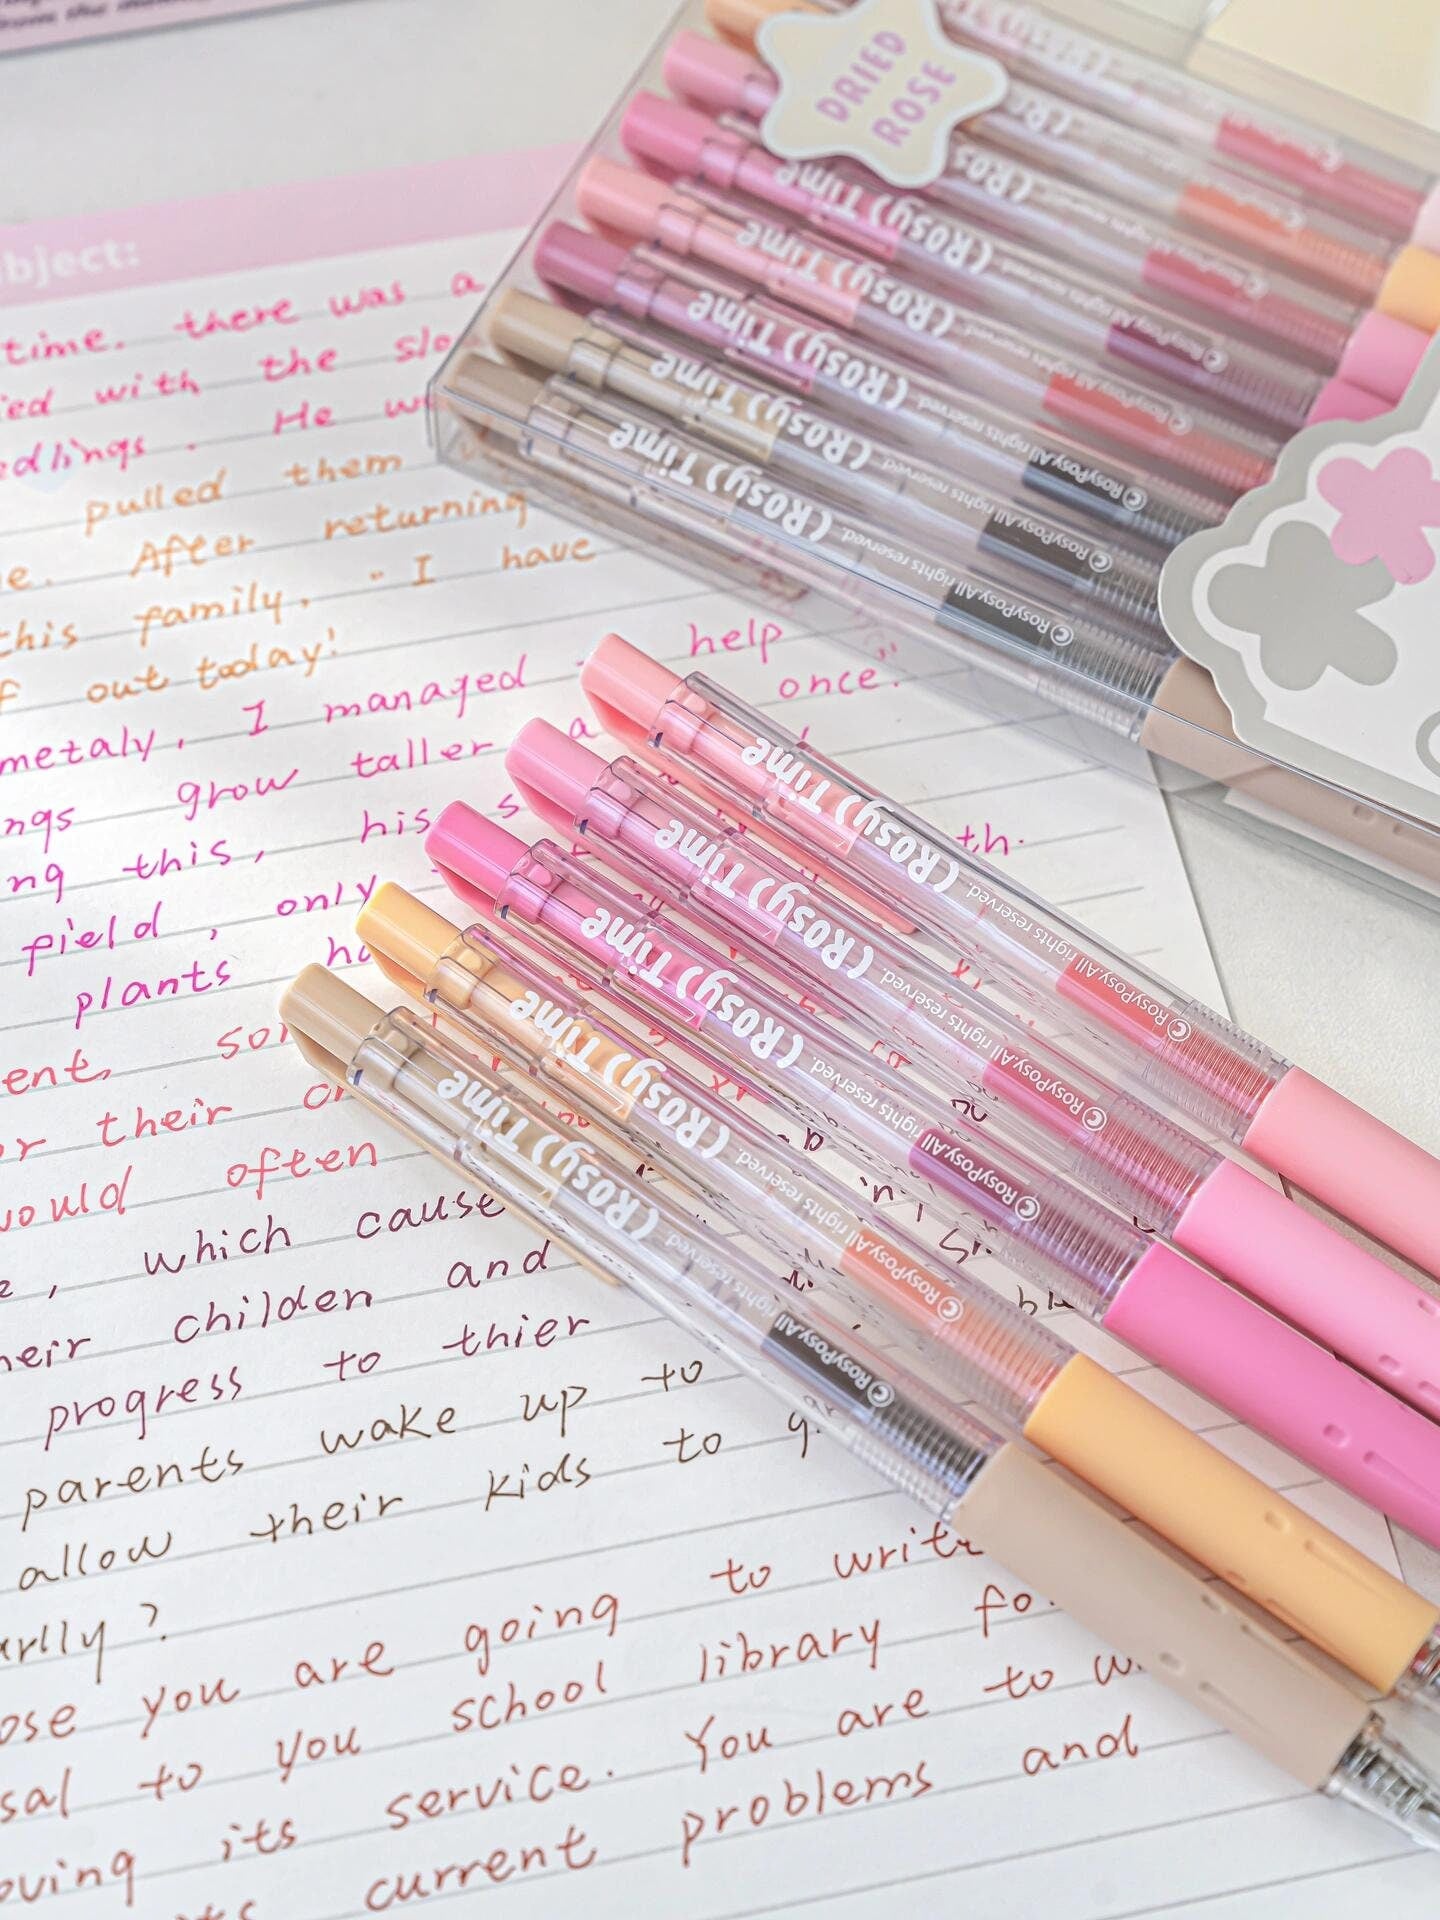 from the
DRIED
ROSE
bject:
time. there was a
ied with the slo
edlings. He w
pulled them
e. After returning
this family, "I have
f out today!
metaly, I managed help
ngs grow taller a once."
ng this, his s th.
field, only
plants ha
ent, son
or their
would often
e, which cause
heir childen and
progress to thier
parents wake up to
allow their kids to g
arlly?
ose you are going to write
sal to you school library fo
oving its service. You are to w
ts current problems and
(Rosy) Time
(Rosy) Time
(Rosy) Time
(Rosy) Time
(Rosy) Time
(Rosy) Time
© RosyPosy.All rights reserved.
© RosyPosy.All rights reserved.
© RosyPosy.All rights reserved.
© RosyPosy.All rights reserved.
© RosyPosy.All rights reserved.
© RosyPosy.All rights reserved.
(Rosy) Time © RosyPosy.All rights reserved.
(Rosy) Time © RosyPosy.All rights reserved.
(Rosy) Time © RosyPosy.All rights reserved.
(Rosy) Time © RosyPosy.All rights reserved.
(Rosy) Time © RosyPosy.All rights reserved.